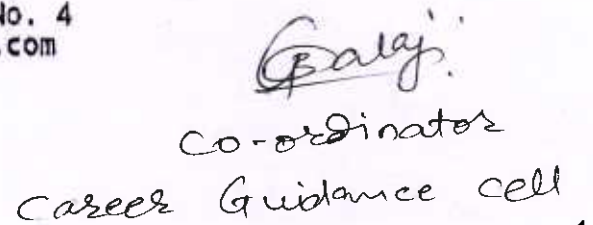 No. 4
.com
GBalaj
Co-ordinator
Career Guidance cell